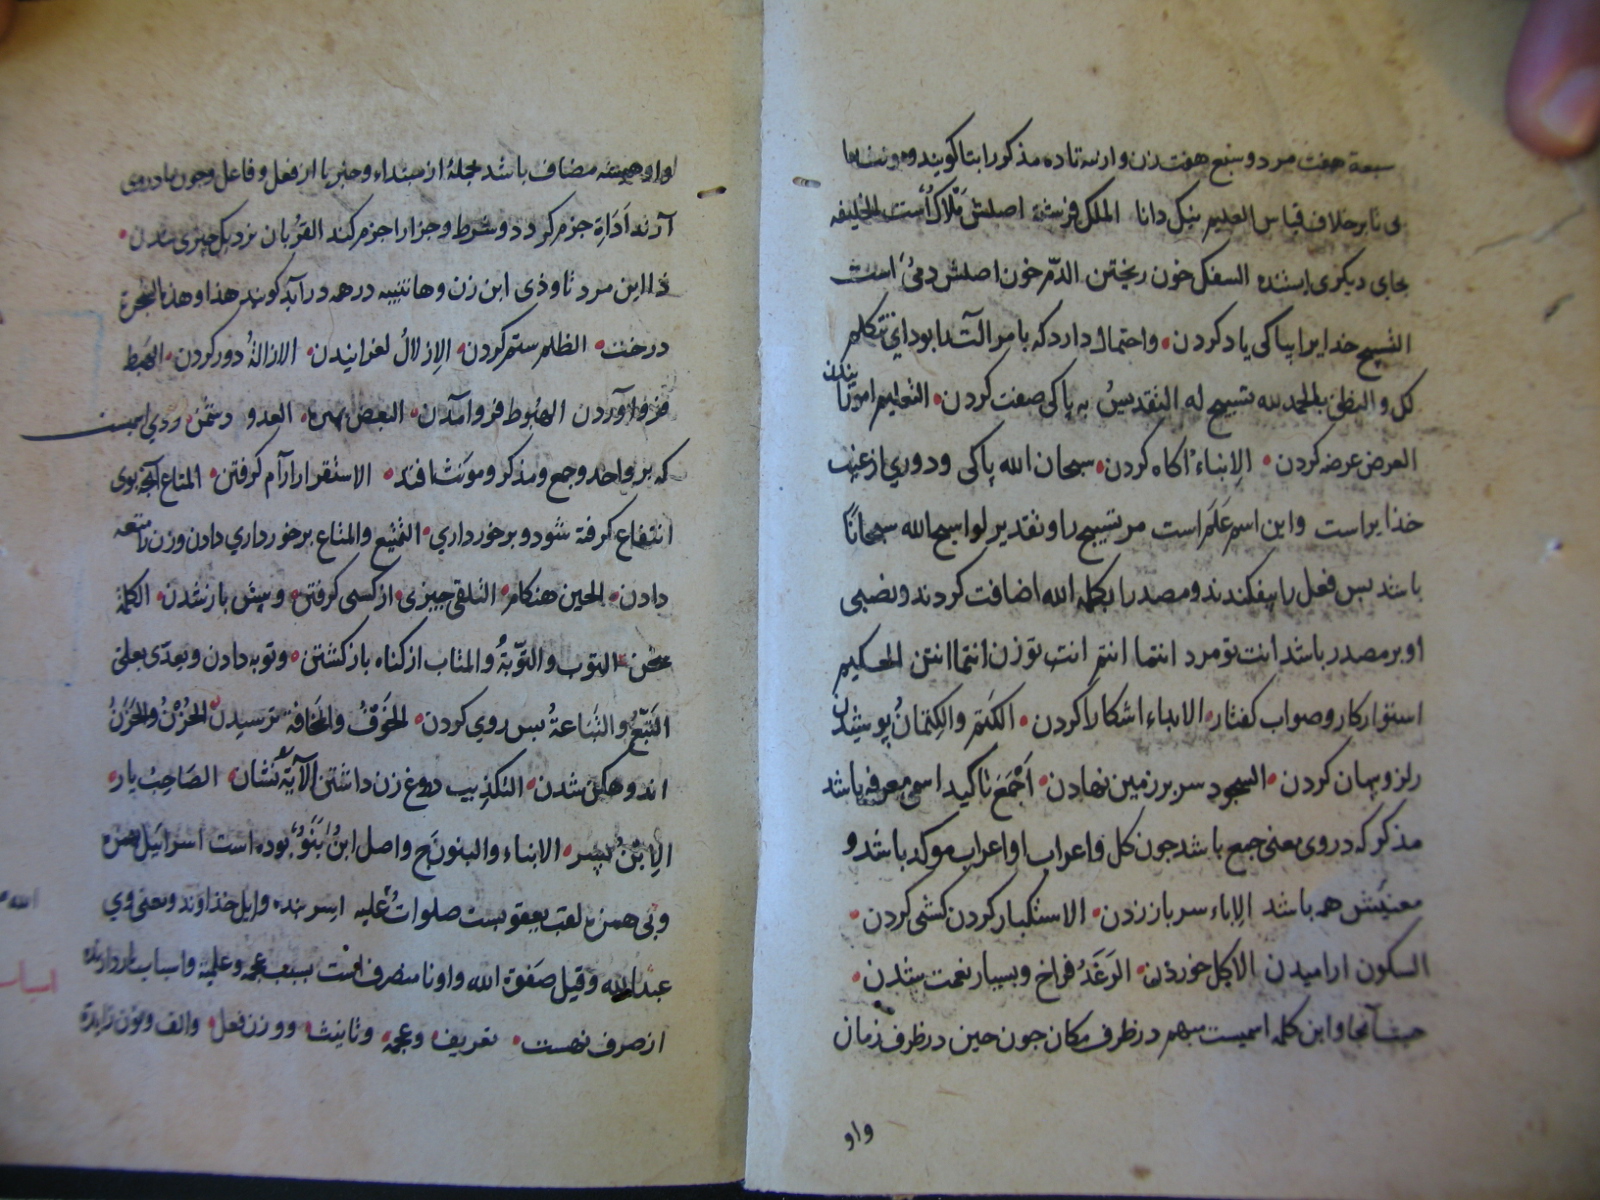 سبعة هفت مرد و سبع هفت زن و از سه تا ده مذکر را بتا کویند و مونث
بی تا برخلاف قیاس العلیم نیک دانا الملک فرشته اصلش مَلْاَکٌ است الخلیفه
بجای دیکری ایستنده السفک خون ریختن الدّم خون اصلش دمیٌ است
التسبیح خدایرا بپاکی یاد کردن واحتمال دارد که بامر التدا بود ای نتکلم
بالحمد لله تسبیح له التقدیسُ به پاکی صفت کردن التعلیم اموزانیدن
العرض عرضه کردن الاِنباءُ آکاه کردن سبحان الله پاکی و دوری از عیب
خدایراست واین اسم عَلَم است مر تسبیح را و تقدیر او اسبح الله سبحانًا
باشد بس فعل را بیفکندند ومصدر را بکلمه الله اضافت کردند ونصبی
او بر مصدر باشد انت تو مرد انتما انتم انتِ تو زن انتما انتن الحکیم
استوار کار و صواب کفتار الابداء اشکارا کردن الکَتم والکِتمانُ پوشیدن
راز وپنهان کردن السجود سر بر زمین نهادن اَجْمَعَ تاکید اسمی معرفه باشد
مذکر که در وی معنی جمع باشد جون کل واعراب او اعراب موکد باشد و
معنیش همه باشد الاِباء سر باز زدن الاستکبار کردن کشی کردن
السکون ارامیدن الاکل خوردن الرَغَدُ فراخ وبسیار نعمت شدن
حیث آنجا واین کلمه اسمیست مبهم در ظرف مکان جون حین در ظرف زمان
واو
واو همیشه مضاف باشد بجملهٔ از مبتداء وخبر یا از فعل وفاعل وجون ما در وی
آرند اَدَاةِ جزم کردد وشرط وجزا را جزم کند القرْبان نزدیک چیزی شدن
ذا این مرد تا وذی این زن وها تنبیه در همه در آید کویند هذا وهذه الشجرة
درخت الظلم ستم کردن الاِزلالُ لغزانیدن الازالةُ دور کردن الهَبط
فرو آوردن الهُبوط فرو آمدن البعض العدو دشمن اسمیست
که بر واحد وجمع ومذکر ومونث افتد الاستقرار آرام کرفتن المتاع آنچه بوی
انتفاع کرفته شود و برخورداری التمتیع والمتاع برخورداری دادن وزن را متعه
دادن الحین هنکام التلقی چیزی از کسی کرفتن و پیش باز شدن الکلمة
سخن التوب والتّوبةُ والمتاب از کناه باز کشتن وتوبه دادن ویعدّی بعلی
التَبَعُ والتباعةُ بس روی کردن الخَوفُ والمخافة ترسیدن الحُزْنُ والحَزَنُ
اندوهکن شدن التکذیب دروغ زن داشتن الآیةُ نشان الصاحبُ یار
الاِبْنُ پسر الابناء والبنون ج واصل ابنٌ بَنَوٌ بوده است اسرائیل بهمزه
وبی همزه لقب یعقوبست صلواتُ علیه اِسر بنده وایل خداوند ومعنی وی
عبد الله وقیل صَفوة الله واو نا منصرف است بسبب عجمه وعلمیة واسباب باز دارنده
از صرف نهست تعریف وعجمه وتانیث ووزن فعل والف ونون زایده